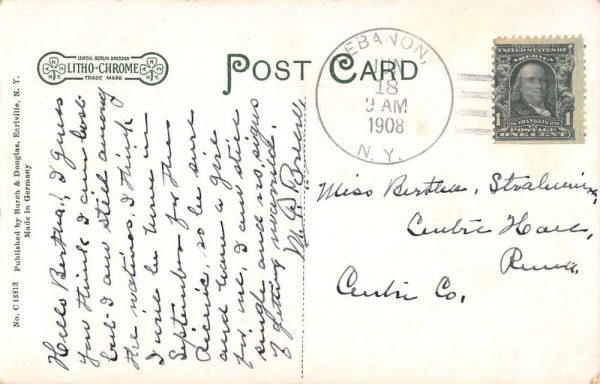 LEIPZIG BERLIN DRESDEN
LITHO-CHROME
TRADE MARK
N.Y.
N.Y.
POST CARD
LEBANON,
JUN
18
9 AM
1908
N. Y.
UNITED STATES OF
AMERICA
1
FRANKLIN
1
POSTAGE
ONE CENT
No. C 13313 Published by Burch & Douglas, Earlville, N. Y.
Made in Germany
Hello Bertha! I guess
you think I am lost
but I am still among
the natives. I think
I will be home in
September for the
Picnic, so be sure
and have a girl
for me, I am still
single and no signs
of getting married.
M. D.
Miss Bertha
Centre Hall,
Penna.
Centre Co.